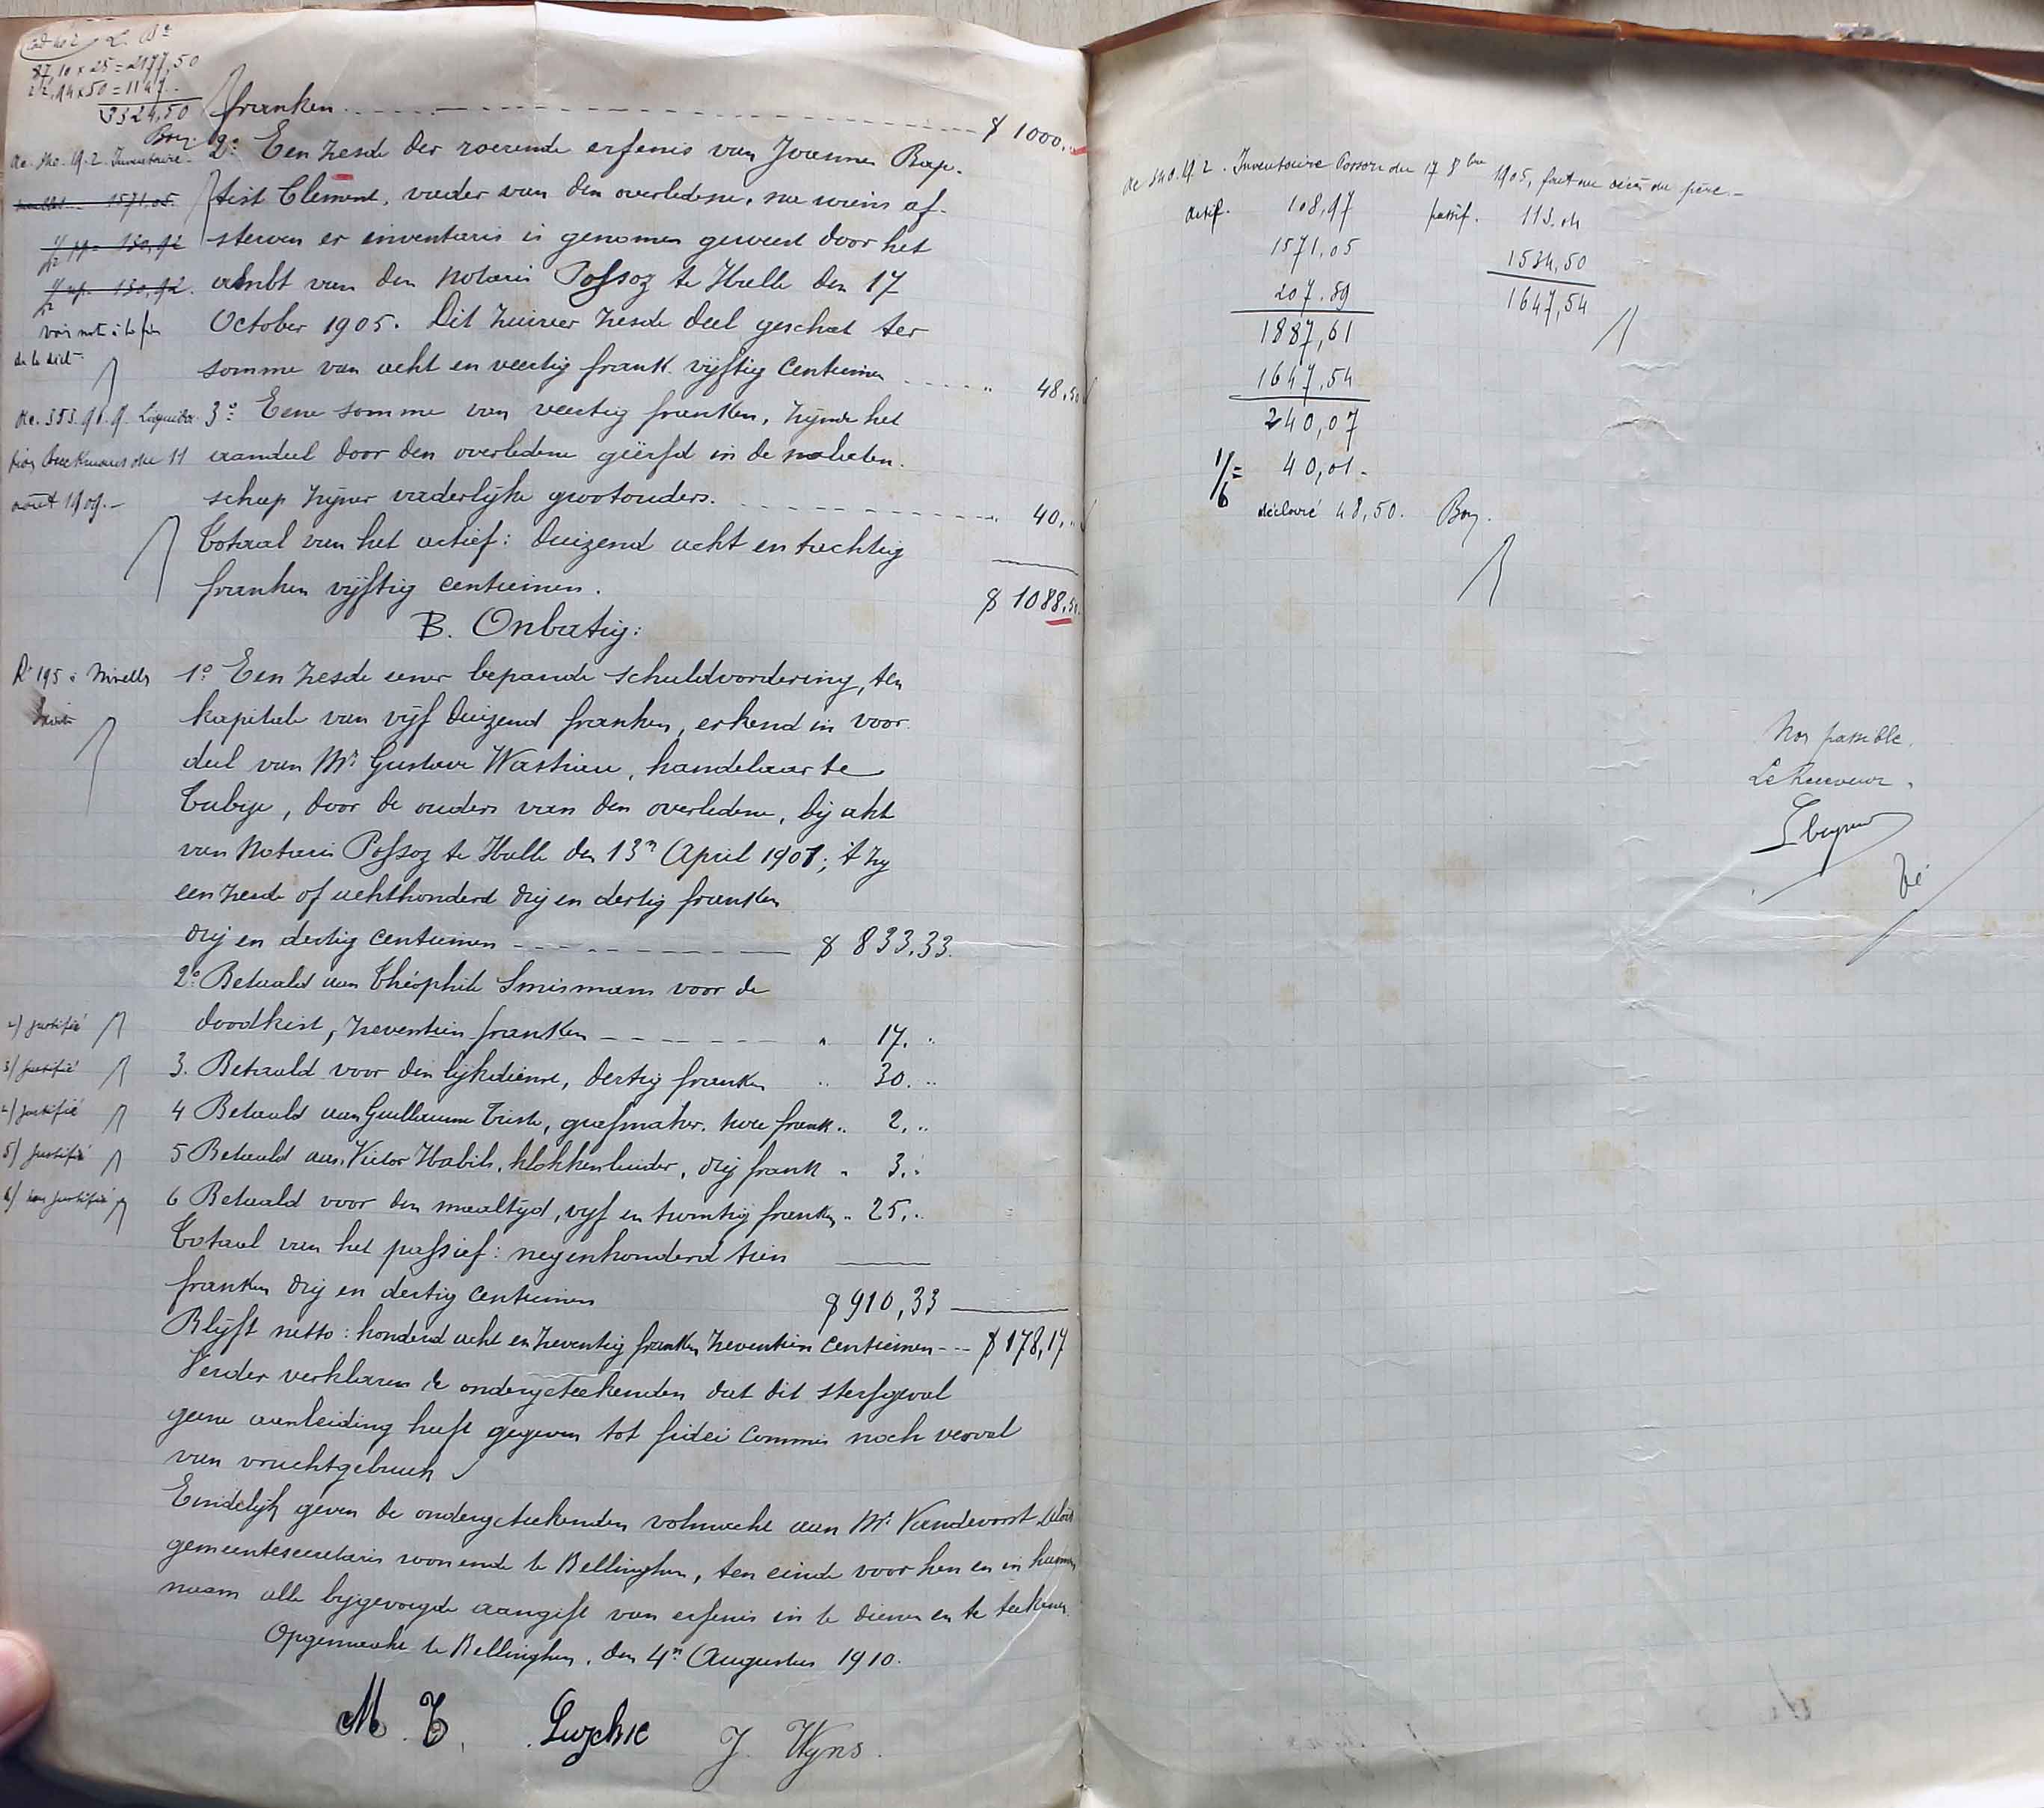 87,10 x 25 = 2177,50
22,94 x 50 = 1147
3324,50
franken $ 1000.
Inventaire
2° Een zesde der roerende erfenis van Joannes Bap-
1571.05
tist Clement, vader van den overledene, na wiens af-
sterven er inventaris is genomen geweest door het
ambt van den Notaris Possoz te Halle den 17
October 1905. Dit zuiver zesde deel geschat ter
somme van acht en veertig frank vijftig centiemen 48,50
3° Eene somme van veertig franken, zijnde het
aandeel door den overledene geërfd in de nalaten-
août 1909.-
schap zijner vaderlijke grootouders. 40,
Totaal van het actief: duizend acht en tachtig
franken vijftig centiemen. $ 1088,50
B. Onbatig:
1° Een zesde eener bepande schuldvordering, ten
kapitale van vijf duizend franken, erkend in voor
deel van Mr Gustave Wastiau, handelaar te
Tubize, door de ouders van den overledene, bij akt
van Notaris Possoz te Halle den 13n April 1901; 't zij
een zesde of achthonderd drij en dertig franken
drij en dertig centiemen $ 833,33.
2° Betaald aan Théophile Smismans voor de
2) justifié
doodkist, zeventien franken " 17. "
3) justifié
3. Betaald voor den lijkdienst, dertig franken " 30. "
4) justifié
4 Betaald aan Guillaume Triste, grafmaker, twee frank " 2, "
5) justifié
5 Betaald aan Victor Habils, klokkenluider, drij frank " 3. "
6) non justifié
6 Betaald voor den maaltijd, vijf en twintig franken " 25, "
Totaal van het passief: negenhonderd tien
franken drij en dertig centiemen $ 910,33
Blijft netto: honderd acht en zeventig franken zeventien centiemen - - - $ 178,17
Verder verklaren de ondergeteekenden dat dit sterfgeval
geene aanleiding heeft gegeven tot fidei commis noch verval
van vruchtgebruik
Eindelijk geven de ondergeteekenden volmacht aan Mr Vandevorst
gemeentesecretaris wonende te Bellinghen, ten einde voor hen en in hunnen
naam alle bijgevoegde aangift van erfenis in te dienen en te teekenen.
Opgemaakt te Bellinghen, den 4n Augustus 1910.
M. T. Luyckx J. Wyns.
Inventaire Possoz du 17 8bre 1905, fait au décès du père.-
actif. 108,97 passif. 113.04
1571,05 1534,50
207.89 1647,54
1887,61
1647,54
240,07
1/6 = 40,01-
déclaré 48,50.
Non passible.
Le Receveur.